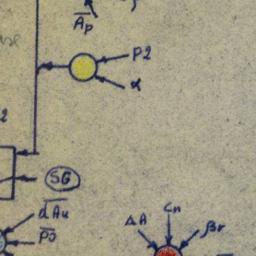 Ap
P2
α
2
SG
dAu
P5
ΔA Cn βr